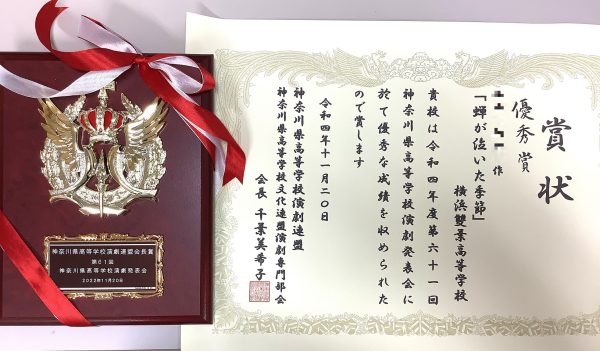 神奈川県高等学校演劇連盟会長賞
第61回
神奈川県高等学校演劇発表会
2022年11月20日
賞状
優秀賞
作
「蟬が泣いた季節」
横浜雙葉高等学校
貴校は令和四年度第六十一回
神奈川県高等学校演劇発表会に
於て優秀な成績を収められた
ので賞します
令和四年十一月二〇日
神奈川県高等学校演劇連盟
神奈川県高等学校文化連盟演劇専門部会
会長 千葉美希子